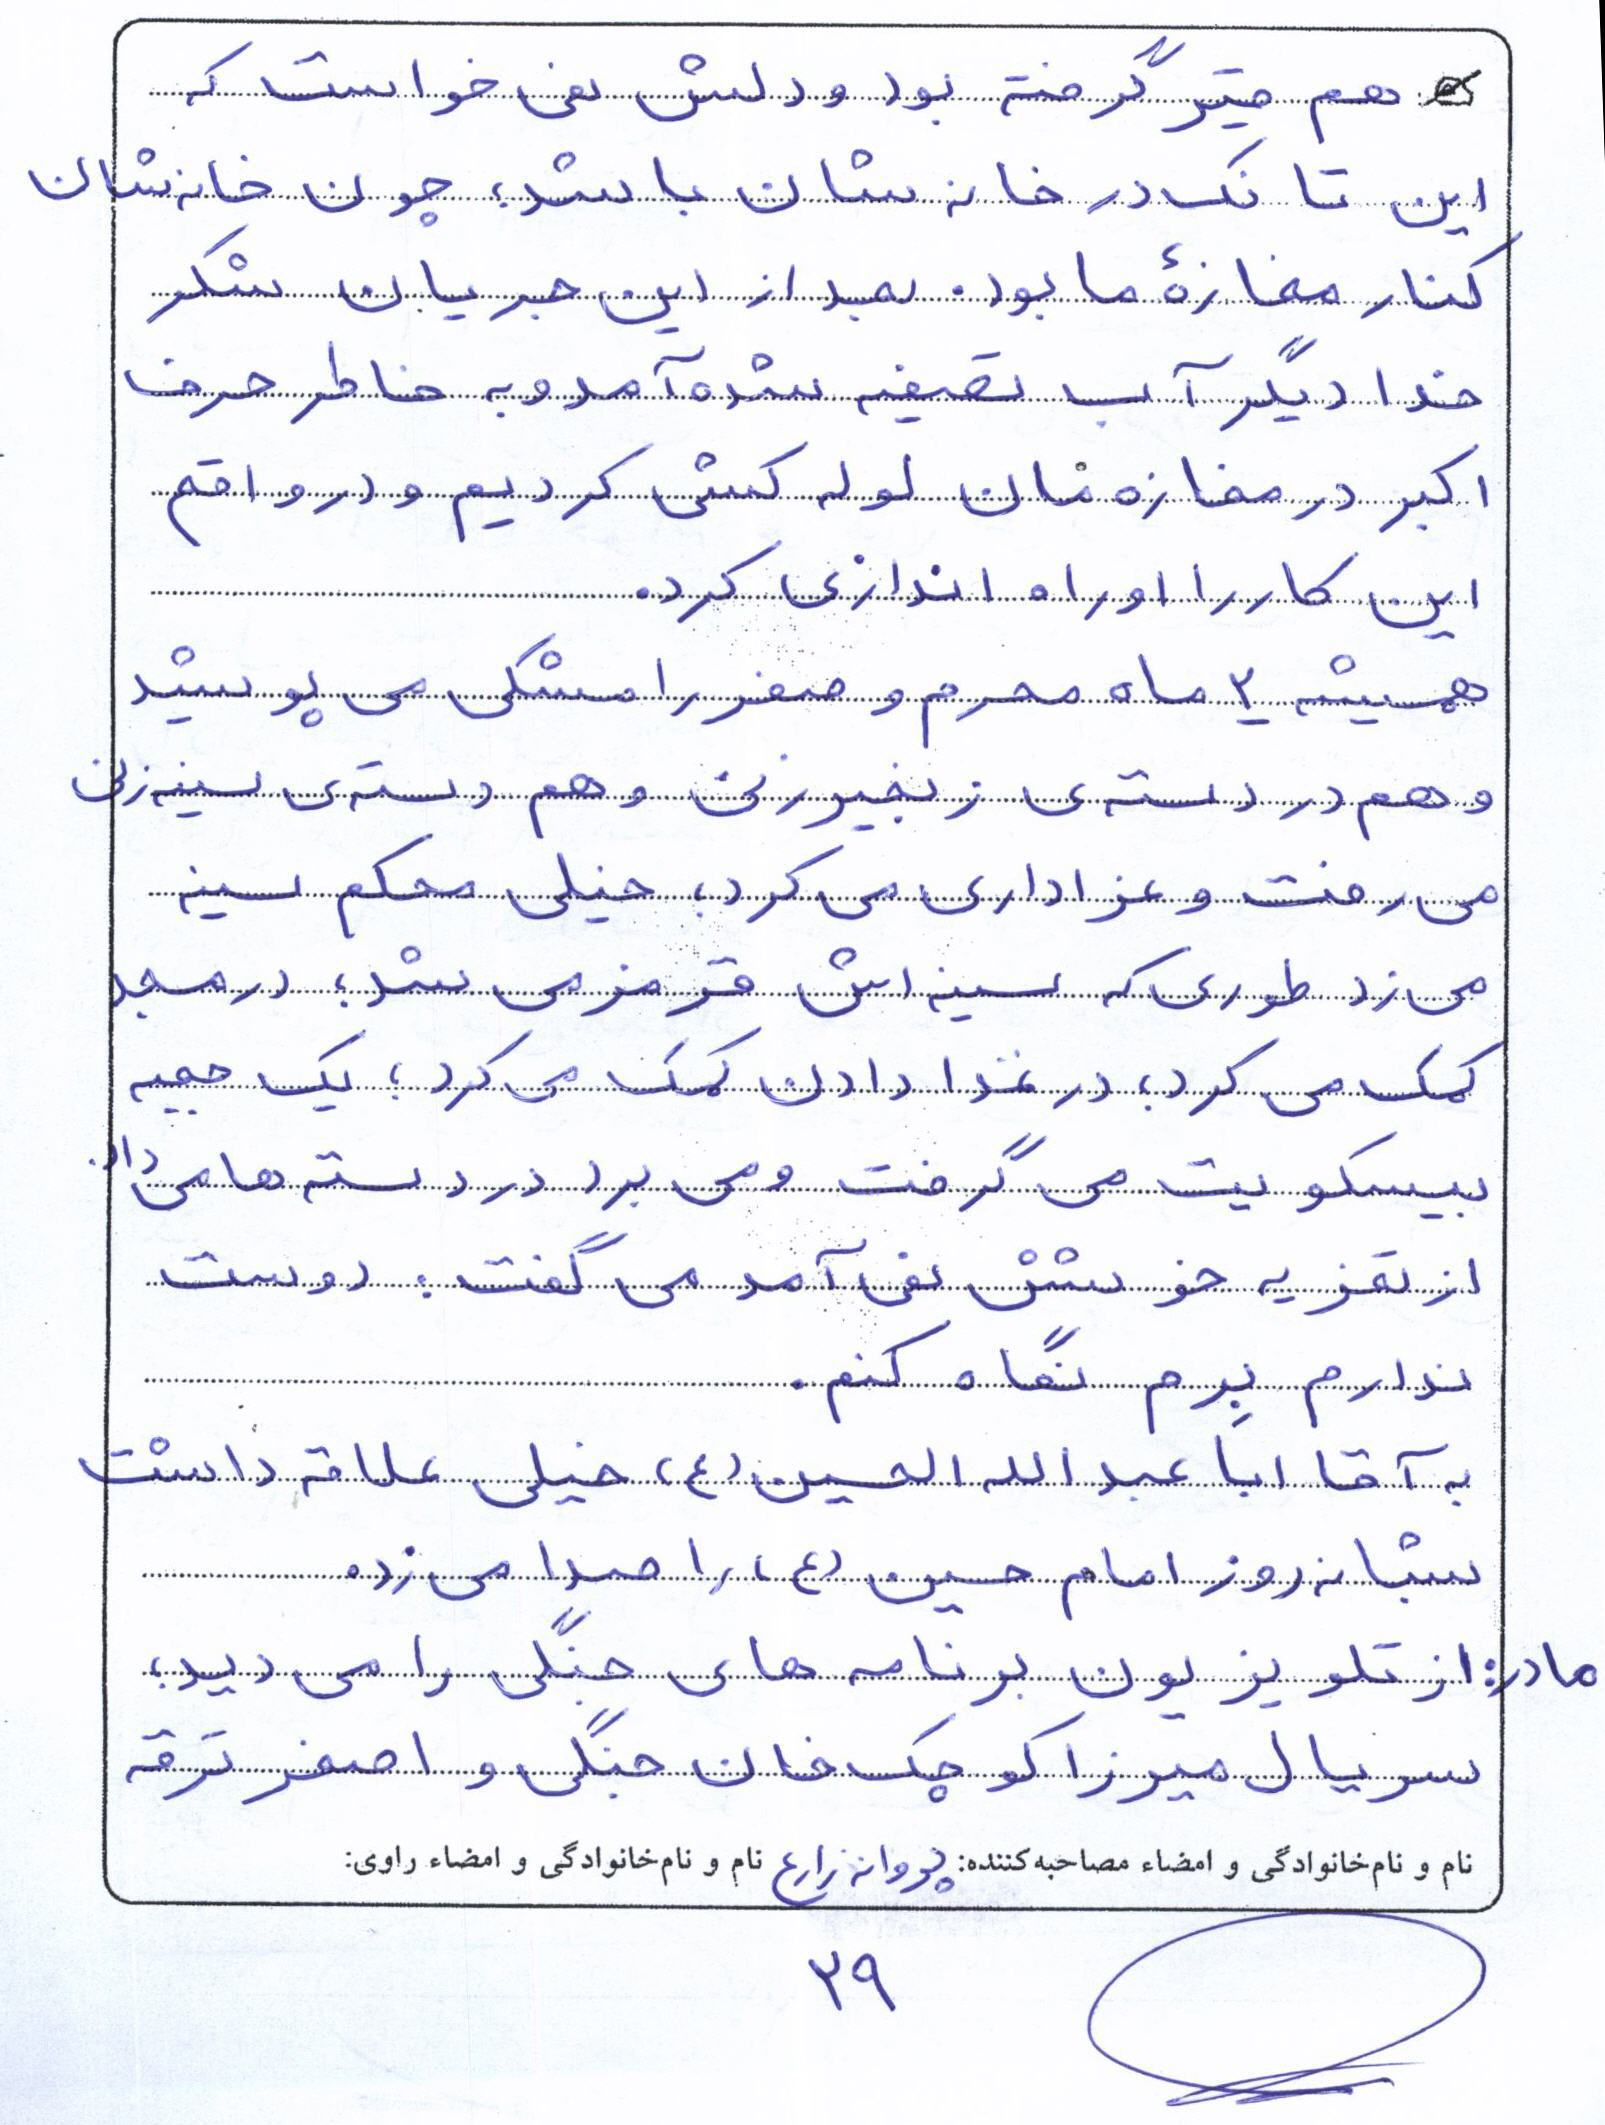 هم قیر گرفته بود و دلش نمی خواست که
این تانک در خانه شان باشد؛ چون خانه‌شان
کنار مغازهٔ ما بود. بعد از این جریان شکر
خدا دیگر آب تصفیه شده آمد و به خاطر حرف
اکبر در مغازه مان لوله کشی کردیم و در واقع
این کار را او راه اندازی کرد.
همیشه ۲ ماه محرم و صفر را مشکی می پوشید
و هم در دسته‌ی زنجیر زنی و هم دسته‌ی سینه‌زنی
می رفت و عزاداری می کرد؛ خیلی محکم سینه
می زد طوری که سینه اش قرمز می شد؛ در مسجد
کمک می کرد؛ در غذا دادن کمک می کرد؛ یک جعبه
بیسکویت می گرفت و می برد در دسته ها می داد.
از تعزیه خوشش نمی آمد می گفت: دوست
ندارم بِرم نگاه کنم.
به آقا اباعبدالله الحسین (ع) خیلی علاقه داشت
شبانه روز امام حسین (ع) را صدا می زد.
مادر: از تلویزیون برنامه های جنگلی را می دید؛
سریال میرزا کوچک خان جنگلی و اصغر ترقه
نام و نام‌خانوادگی و امضاء مصاحبه‌کننده: پروانه زارع نام و نام‌خانوادگی و امضاء راوی:
۲۹